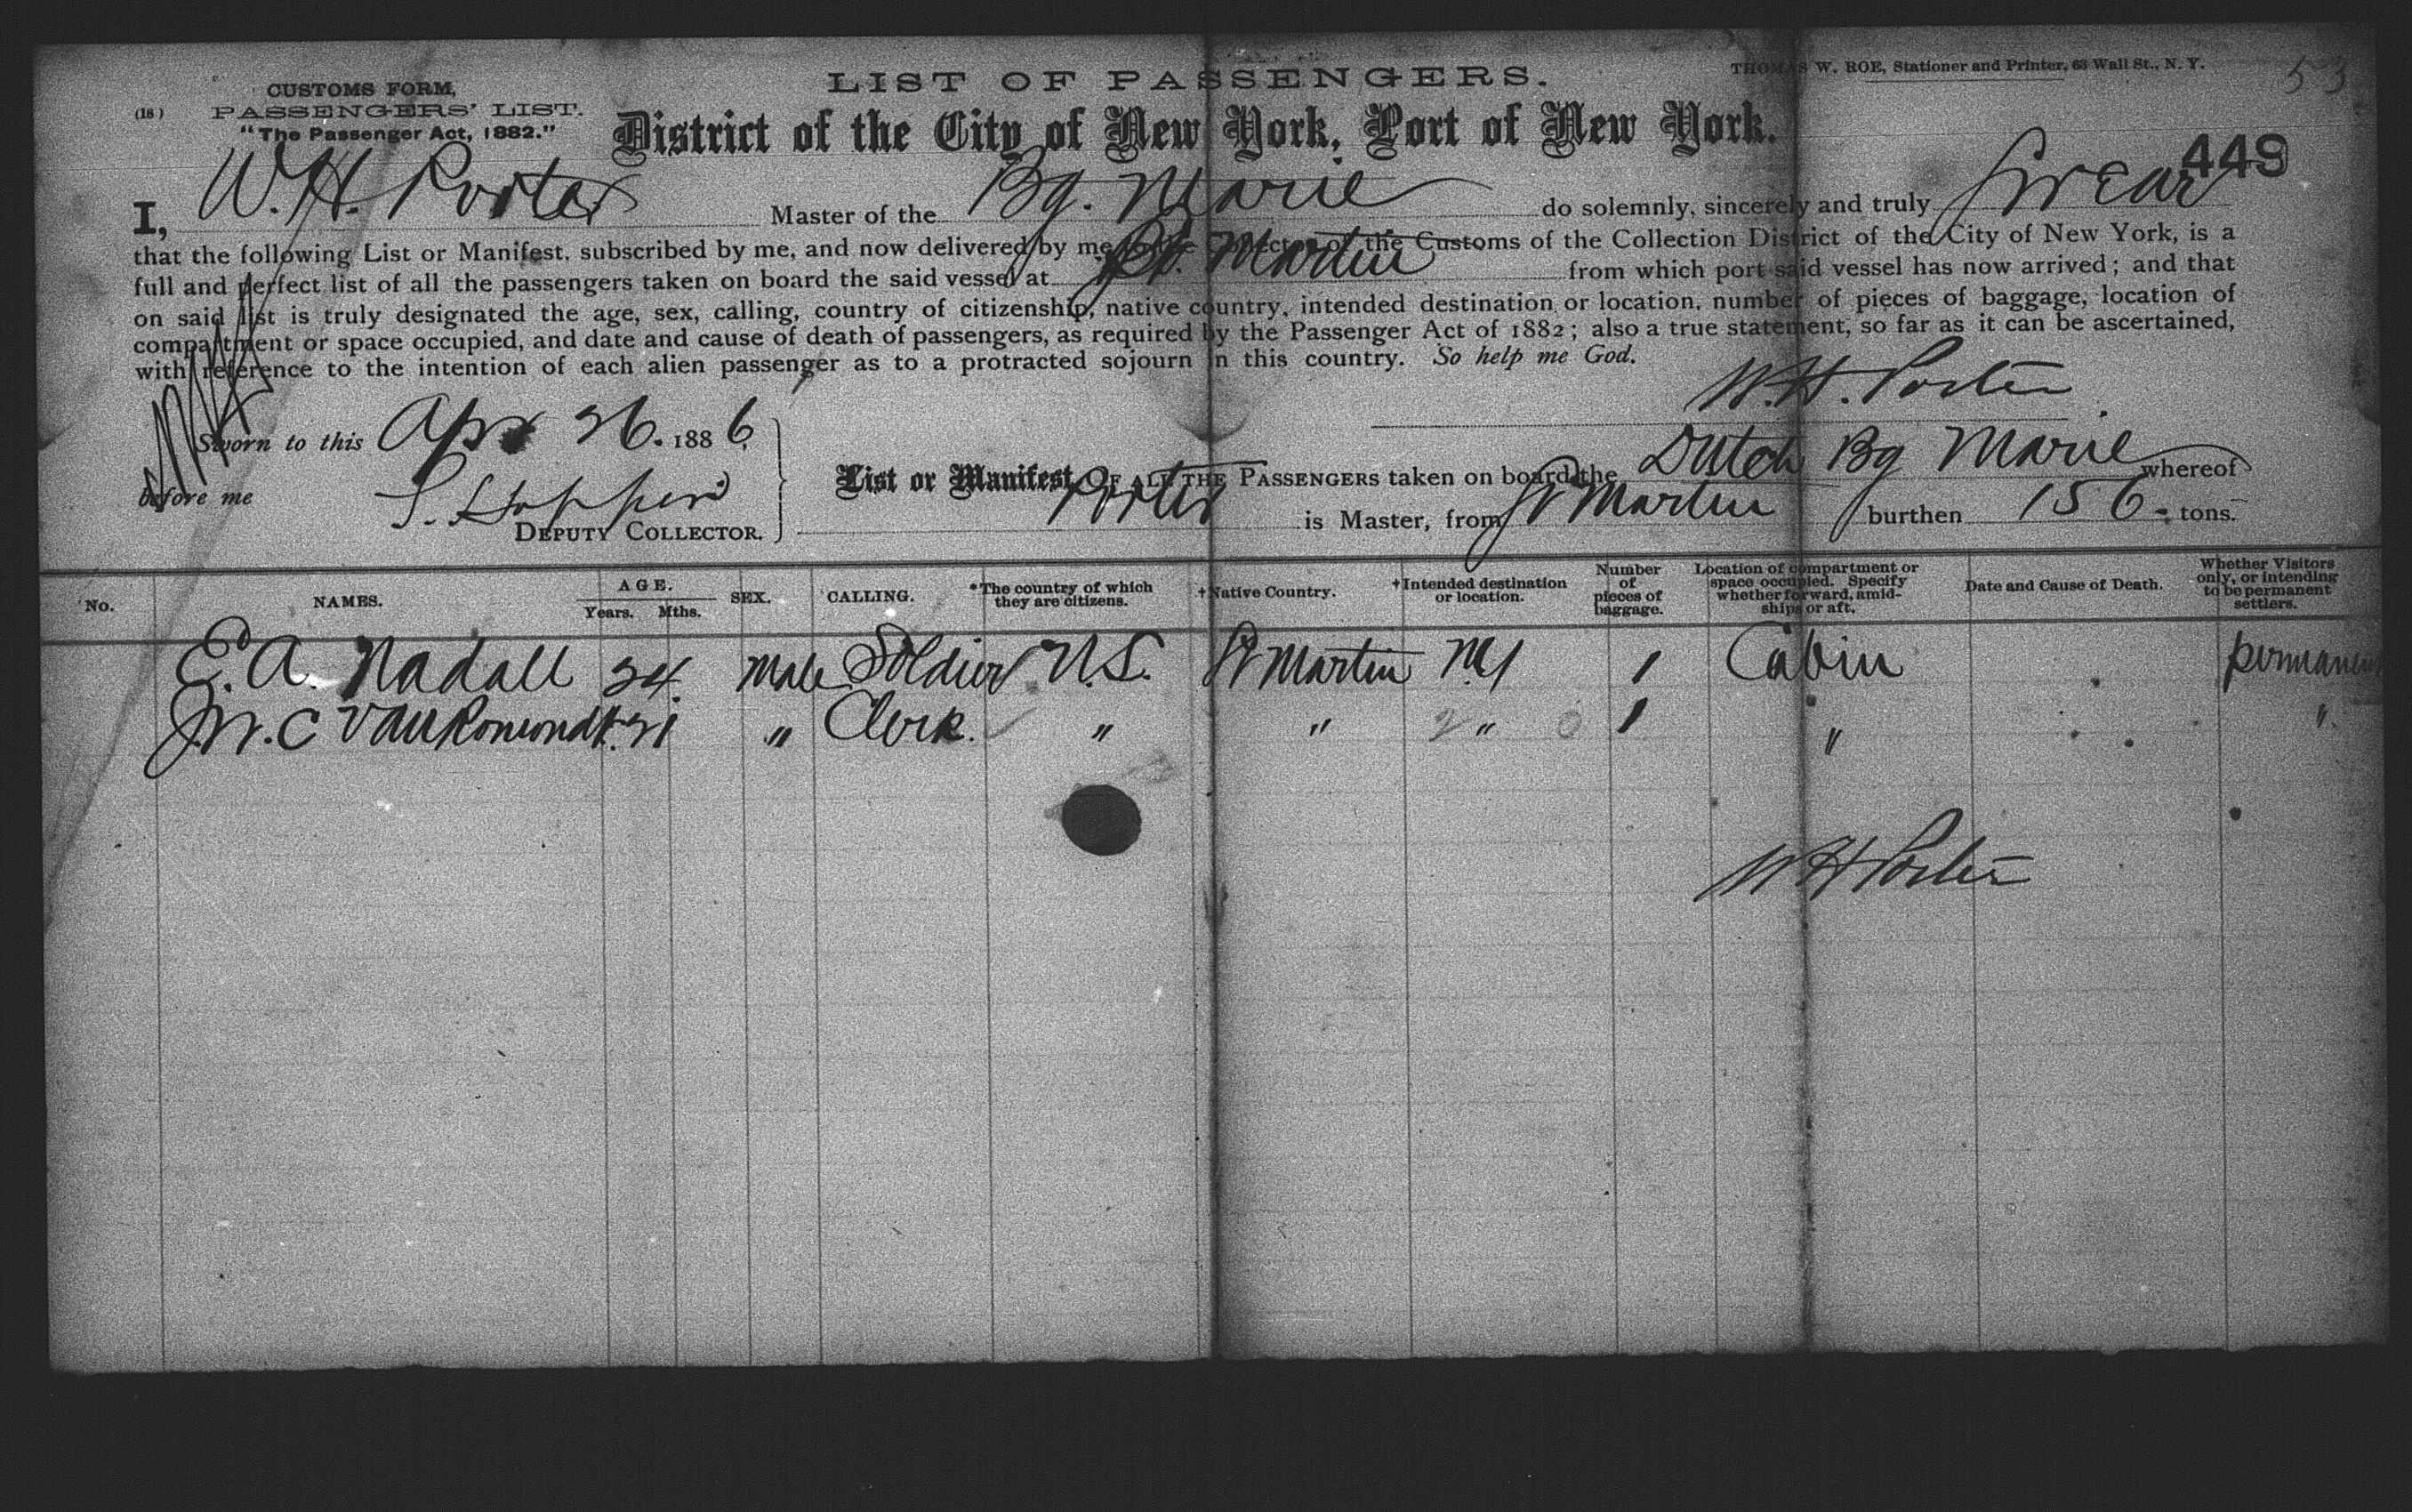 LIST OF PASSENGERS.
THOMAS W. ROE, Stationer and Printer, 63 Wall St., N. Y.
53
CUSTOMS FORM,
(18) PASSENGERS' LIST.
"The Passenger Act, 1882."
District of the City of New York, Port of New York.
449
I, W. H. Porter Master of the Bg. Marie do solemnly, sincerely and truly Swear
that the following List or Manifest, subscribed by me, and now delivered by me to the Collector of the Customs of the Collection District of the City of New York, is a
full and perfect list of all the passengers taken on board the said vessel at St. Martin from which port said vessel has now arrived; and that
on said list is truly designated the age, sex, calling, country of citizenship, native country, intended destination or location, number of pieces of baggage, location of
compartment or space occupied, and date and cause of death of passengers, as required by the Passenger Act of 1882; also a true statement, so far as it can be ascertained,
with reference to the intention of each alien passenger as to a protracted sojourn in this country. So help me God.
W. H. Porter
Sworn to this Apr 26. 1886
before me
DEPUTY COLLECTOR.
List or Manifest OF ALL THE PASSENGERS taken on board the Dutch Bg Marie whereof
Porter is Master, from St Martin burthen 156 tons.
No. NAMES. AGE. Years. Mths. SEX. CALLING. *The country of which they are citizens. †Native Country. †Intended destination or location. Number of pieces of baggage. Location of compartment or space occupied. Specify whether forward, amidships or aft. Date and Cause of Death. Whether Visitors only, or intending to be permanent settlers.
E. A. Nadall 24 Male Soldier U.S. St Martin NY 1 Cabin permanent
J. W. C Van Romondt 21 " Clerk. " " 2 " 0 1 " "
W H Porter